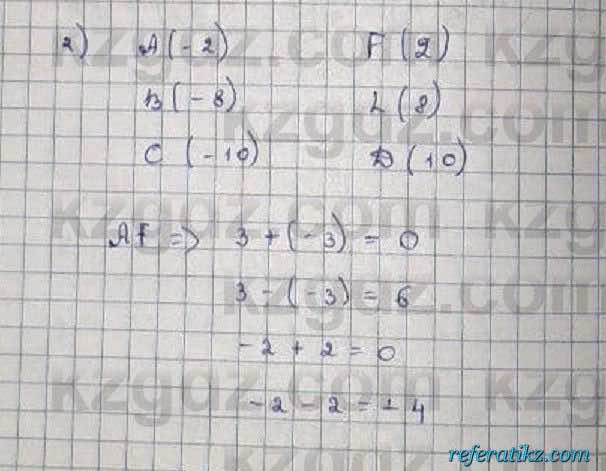 2) A(-2) F(2)
B(-8) L(8)
C(-10) D(10)
AF => 3 + (-3) = 0
3 - (-3) = 6
-2 + 2 = 0
-2 - 2 = -4
kzgdz.com
referatikz.com